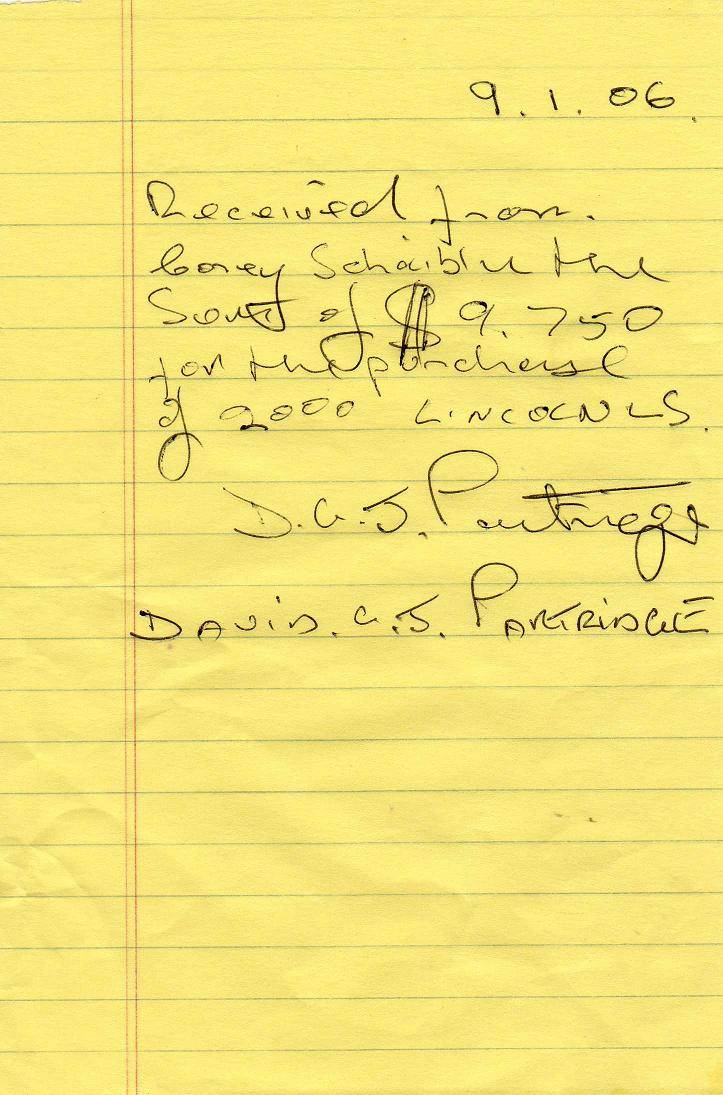 9.1.06.
Received from.
Corey Schaible the
Sum of $ 9.750
for the purchase
of 2000 LINCOLN LS.
D.G.J. Partridge
DAVID. G.J. PARTRIDGE